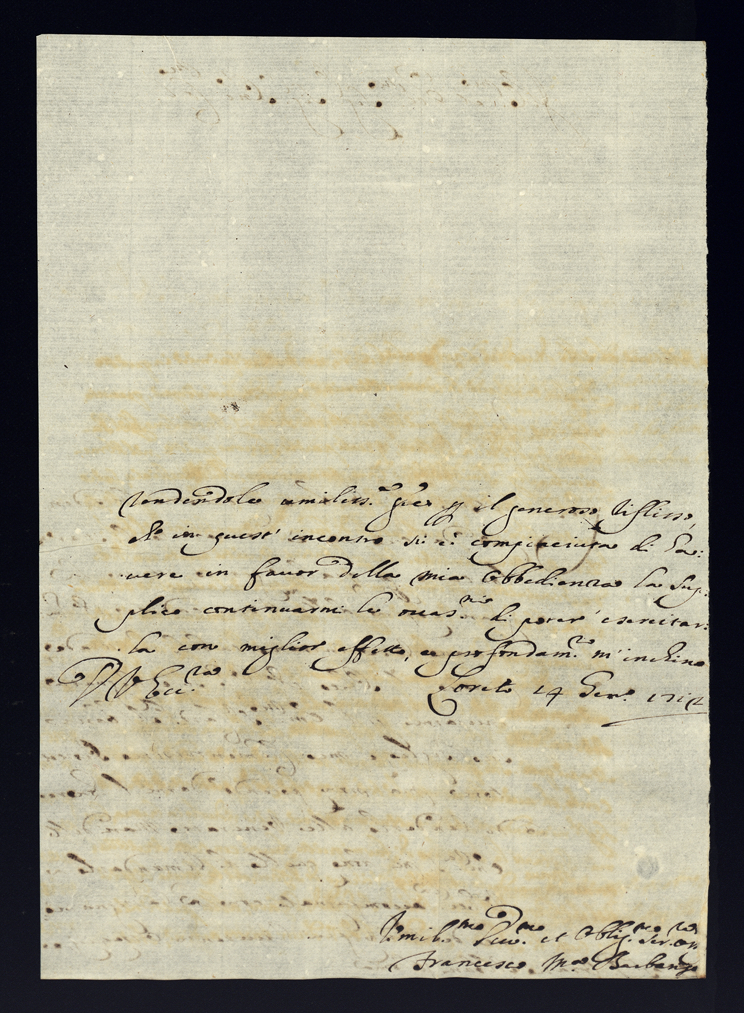 rendendole umiliss.e gr.e p il generoso riflesso,
che in quest' incontro si è compiaciuta di ha:
vere in favor della mia obbedienza la sup:
plico continuarmi le occas.ni di poter esercitar:
la con miglior effetto, e profondam.te m'inchino
D V Ecc.za
Loreto 14 Gen.o
Umil.mo Dev.mo et Obblig.mo Ser.re
Francesco M.a